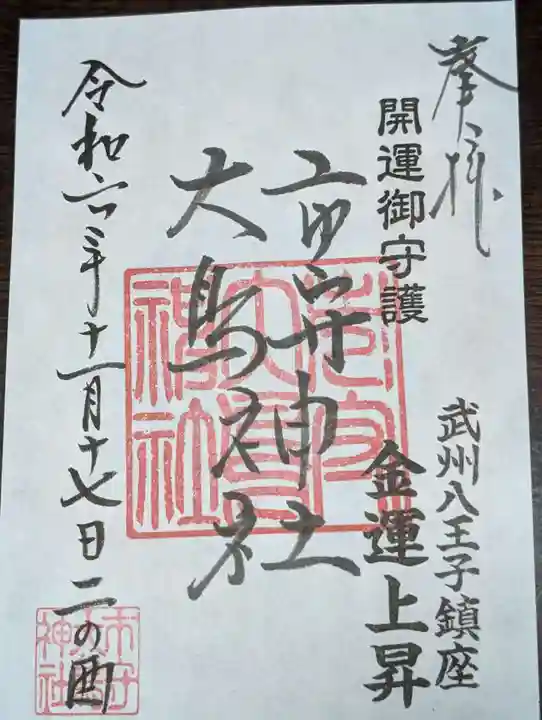 奉拝
開運御守護
武州八王子鎮座
金運上昇
市守神社
大鳥神社
令和六年十一月十七日二の酉
市守大鳥神社